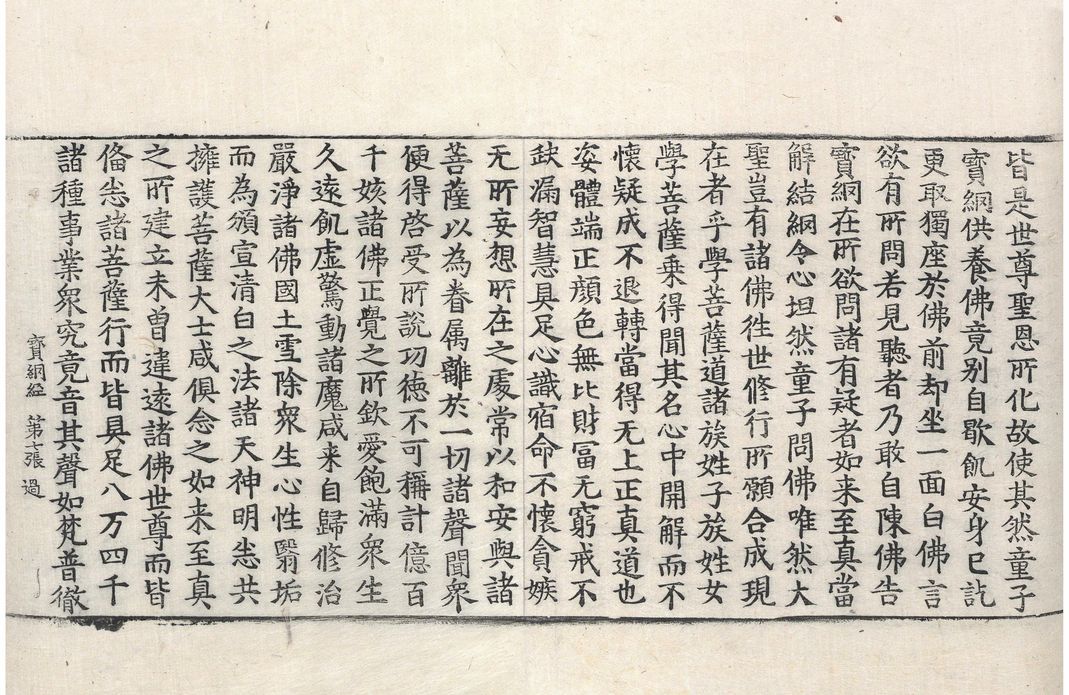 皆是世尊聖恩所化故使其然童子
寶網供養佛竟别自歇飢安身已訖
更取獨座於佛前却坐一面白佛言
欲有所問若見聽者乃敢自陳佛告
寶網在所欲問諸有疑者如来至真當
解結網令心坦然童子問佛唯然大
聖豈有諸佛徃世修行所願合成現
在者乎學菩薩道諸族姓子族姓女
學菩薩乗得聞其名心中開解而不
懷疑成不退轉當得无上正真道也
姿體端正顔色無比財冨无窮戒不
缺漏智慧具足心識宿命不懷貪嫉
无所妄想所在之處常以和安與諸
菩薩以為眷属離於一切諸聲聞衆
便得啓受所說功徳不可稱計億百
千姟諸佛正覺之所欽愛飽滿衆生
久遠飢虚驚動諸魔咸来自歸修治
嚴淨諸佛國土雪除衆生心性翳垢
而為頒宣清白之法諸天神明悉共
擁護菩薩大士咸俱念之如来至真
之所建立未曾違遠諸佛世尊而皆
俻悉諸菩薩行而皆具足八万四千
諸種事業衆究竟音其聲如梵普徹
寶網經　第七張　過